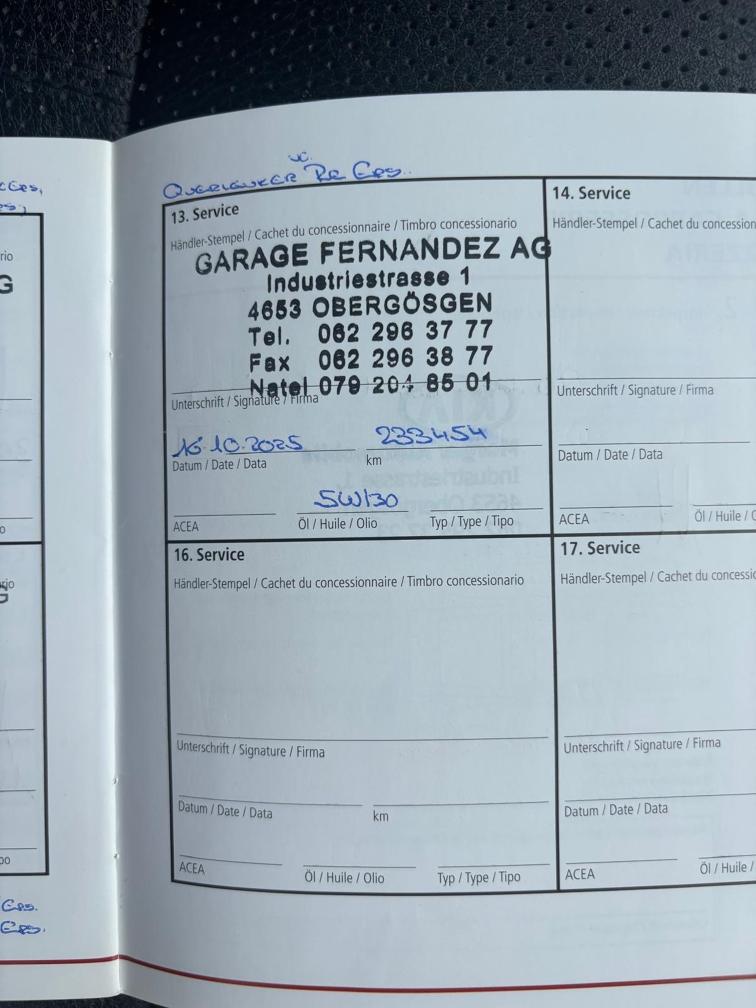 QUERLENKER Re Ers.
13. Service
Händler-Stempel / Cachet du concessionnaire / Timbro concessionario
GARAGE FERNANDEZ AG
Industriestrasse 1
4653 OBERGÖSGEN
Tel. 062 296 37 77
Fax 062 296 38 77
Natel 079 204 85 01
Unterschrift / Signature / Firma
16.10.2025 233454
Datum / Date / Data km
5W/30
ACEA Öl / Huile / Olio Typ / Type / Tipo
14. Service
Händler-Stempel / Cachet du
Unterschrift / Signature / Firma
Datum / Date / Data
ACEA Öl / Huile /
16. Service
Händler-Stempel / Cachet du concessionnaire / Timbro concessionario
Unterschrift / Signature / Firma
Datum / Date / Data km
ACEA Öl / Huile / Olio Typ / Type / Tipo
17. Service
Händler-Stempel / Cachet du
Unterschrift / Signature / Firma
Datum / Date / Data
ACEA Öl / Huile /
Ers.
Ers.